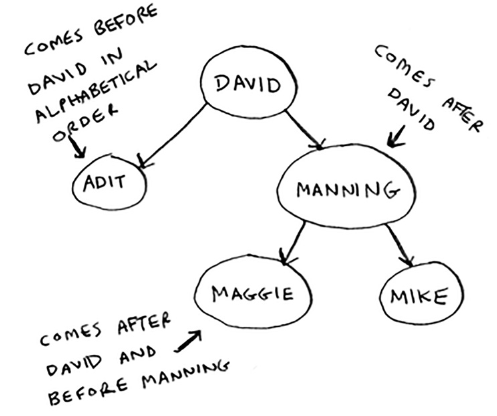 COMES BEFORE
DAVID IN
ALPHABETICAL
ORDER
DAVID
COMES AFTER
DAVID
ADIT
MANNING
MAGGIE
MIKE
COMES AFTER
DAVID AND
BEFORE MANNING